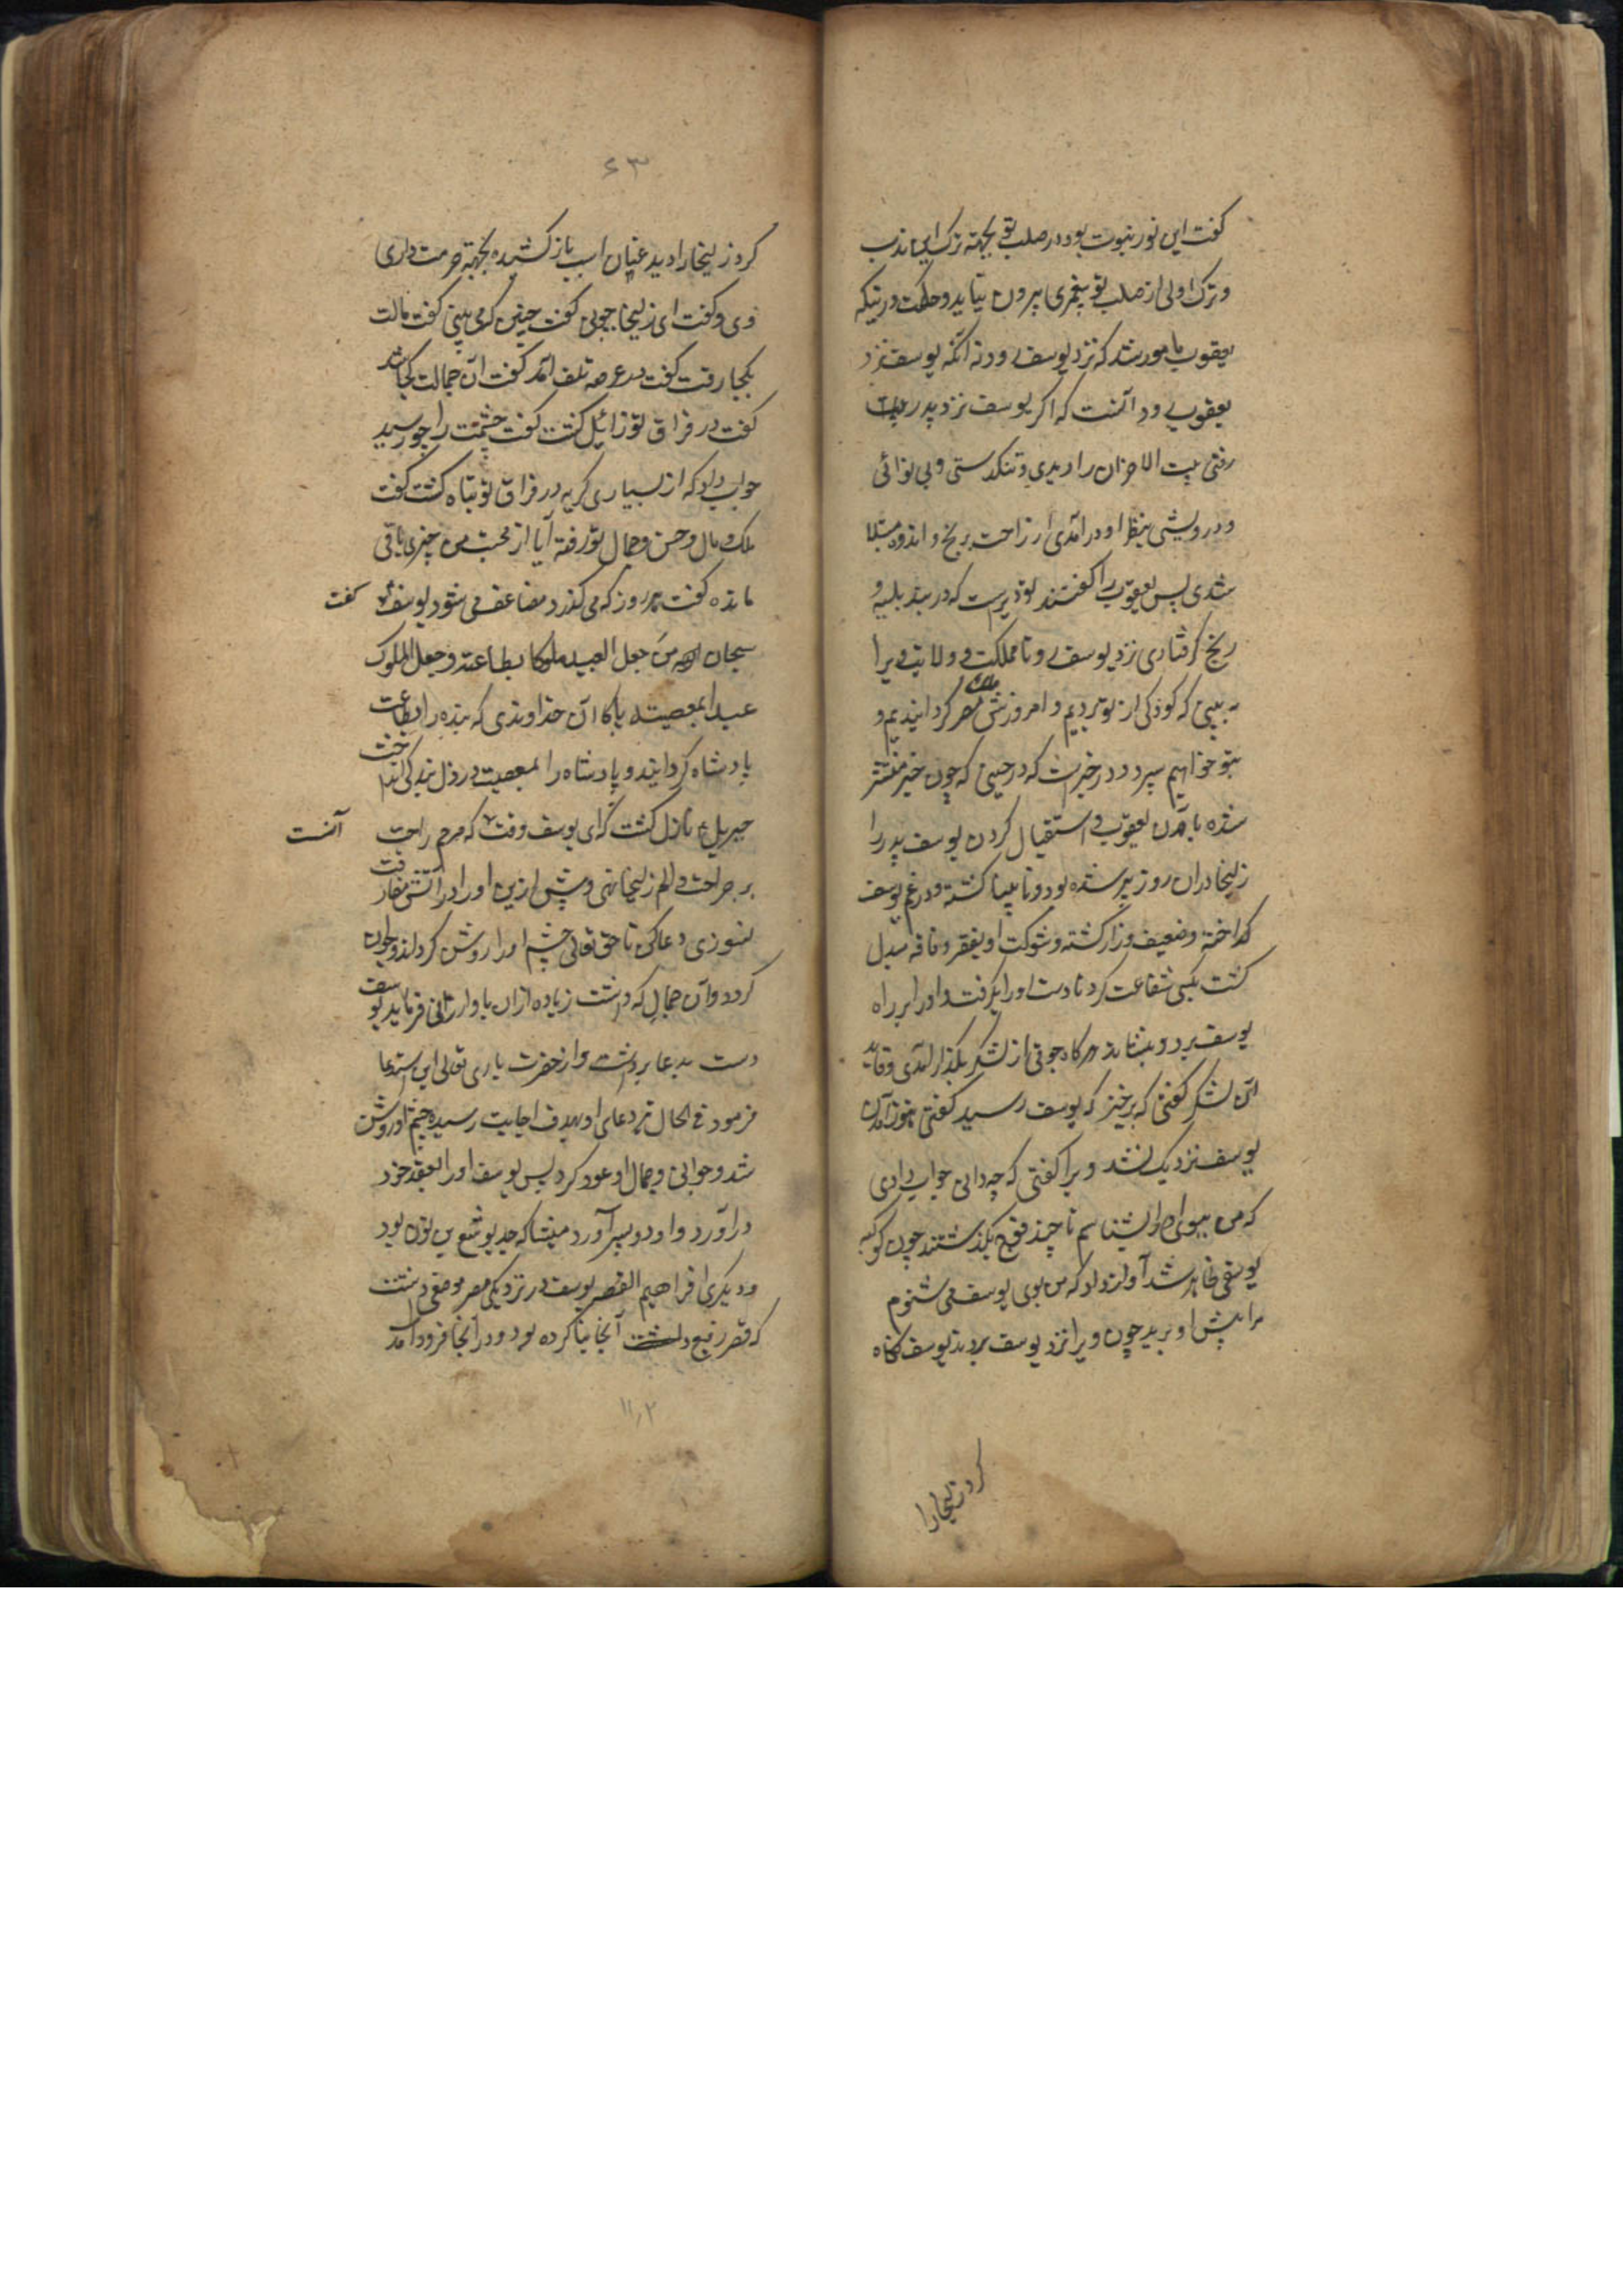 کفت این نور نبوت بود در صلب تو بجهته ترک این ادب
و ترک اولی از صلب تو پیغمبری بیرون نیاید و حکمت در نیکه
یعقوب مامور شد که نزد یوسف رود نه آنکه یوسف نزد
یعقوب رود آنست که اکر یوسف نزد پدر
رفتی بیت الاحزان را دیدی و تنکدستی و بی نوائی
و درویشی بنظر او در آمدی از راحت برنج و اندوه مبتلا
شدی پس یعقوب را کفتند تو دیرست که در بند بلیه و
رنج کرفتاری نزد یوسف رو تا مملکت و ولایت ویرا
به بینی که کودکی از تو بردیم و امروزش ملک مصر کردانیدیم و
بتو خواهیم سپرد و در خبرست که در حینی که چون خبر منتشر
شده بآمدن یعقوب و استقبال کردن یوسف پدر را
زلیخا دران روز پیر شده بود و نابینا کشته و در غم یوسف
کداخته و ضعیف و زار کشته و شوکت او بفقر و فاقه مبدل
کشت بکسی شفاعت کرد تا دست او را بکرفت و او را بر راه
یوسف برد و بنشاند هر کاه جوقی از لشکر بکذار آمدی و قاید
آن لشکر کفتی که برخیز که یوسف رسید کفتی هنوز آمدن
یوسف نزدیک نشد ویرا کفتی که چه دانی جواب دادی
که من ببوی او را بشناسم تا چند فوج بکذشتند چون کوکبه
یوسفی ظاهر شد آواز داد که من بوی یوسف می شنوم
مرا پیش او برید چون ویرا نزد یوسف بردند یوسف نکاه
کرد زلیخا را
۶۳
کرد زلیخا را دید عنان اسب باز کشیده بجهته حرمت داری
وی و کفت ای زلیخا چونی کفت چنین که می بینی کفت مالت
بکجا رفت کفت در عرصه تلف آمد کفت آن جمالت کجا شد
کفت در فراق تو زائل کشت کفت چشمت را چه رسید
جواب داد که از بسیاری کریه در فراق تو تباه کشت کفت
ملک و مال و حسن و جمال تو رفته آیا از محبت من چیزی باقی
مانده کفت هر روز که می کذرد مضاعف می شود یوسف ع کفت
سبحان من جعل العبید ملوکا بطاعته و جعل الملوک
عبیدا بمعصیته پاکا آن خداوندی که بنده را بطاعت
پادشاه کرداند و پادشاه را بمعصیت در ذل بندکی انداخت
جبریل ع نازل کشت که ای یوسف وقت آنست که مرهم راحت
بر جراحت و الم زلیخا نهی و بیش ازین او را در آتش مفارقت
نسوزی دعا کن تا حق تعالی چشم او را روشن کرداند و جوان
کردد و آن جمال که داشت زیاده ازان باو ارزانی فرماید یوسف
دست بدعا برداشت و از حضرت باری تعالی این استدعا
فرمود فی الحال تیر دعای او بهدف اجابت رسیده چشم او روشن
شد و جوانی و جمال او عود کرد پس یوسف او را بعقد خود
در آورد و او دو پسر آورد میشا که جد یوشع بن نون بود
و دیکری افراهیم القصه یوسف در نزدیکی مصر موضعی داشت
که قصر رفیع آنجا بنا کرده بود و در آنجا فرود آمد
۱۱٫۲